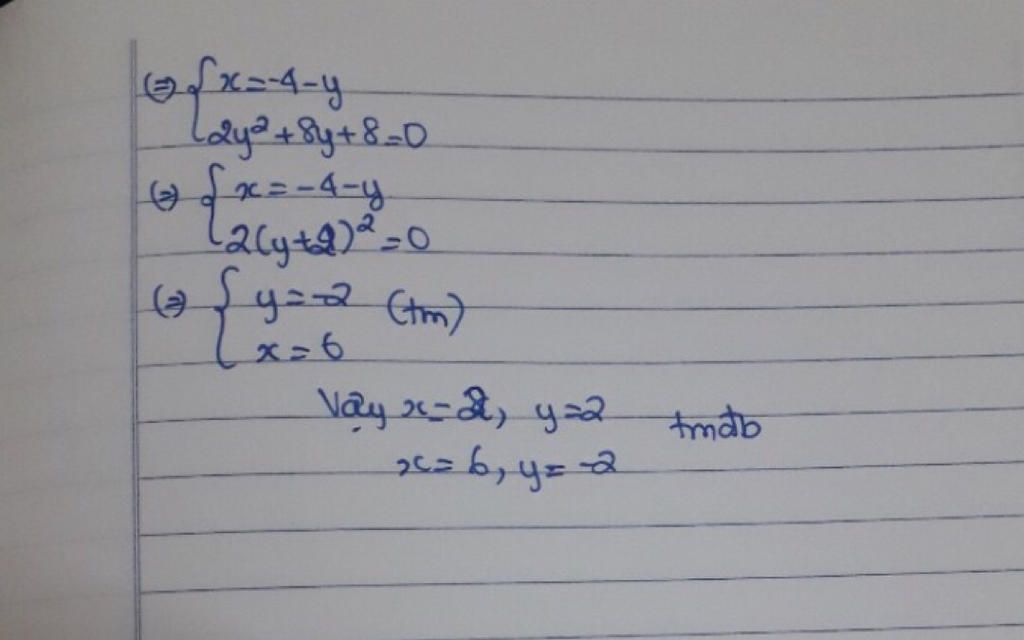 ⇔ { x = -4 - y
2y² + 8y + 8 = 0
⇔ { x = -4 - y
2(y+2)² = 0
⇔ { y = -2 (tm)
x = 6
Vậy x = 2, y = 2 tmđb
x = 6, y = -2